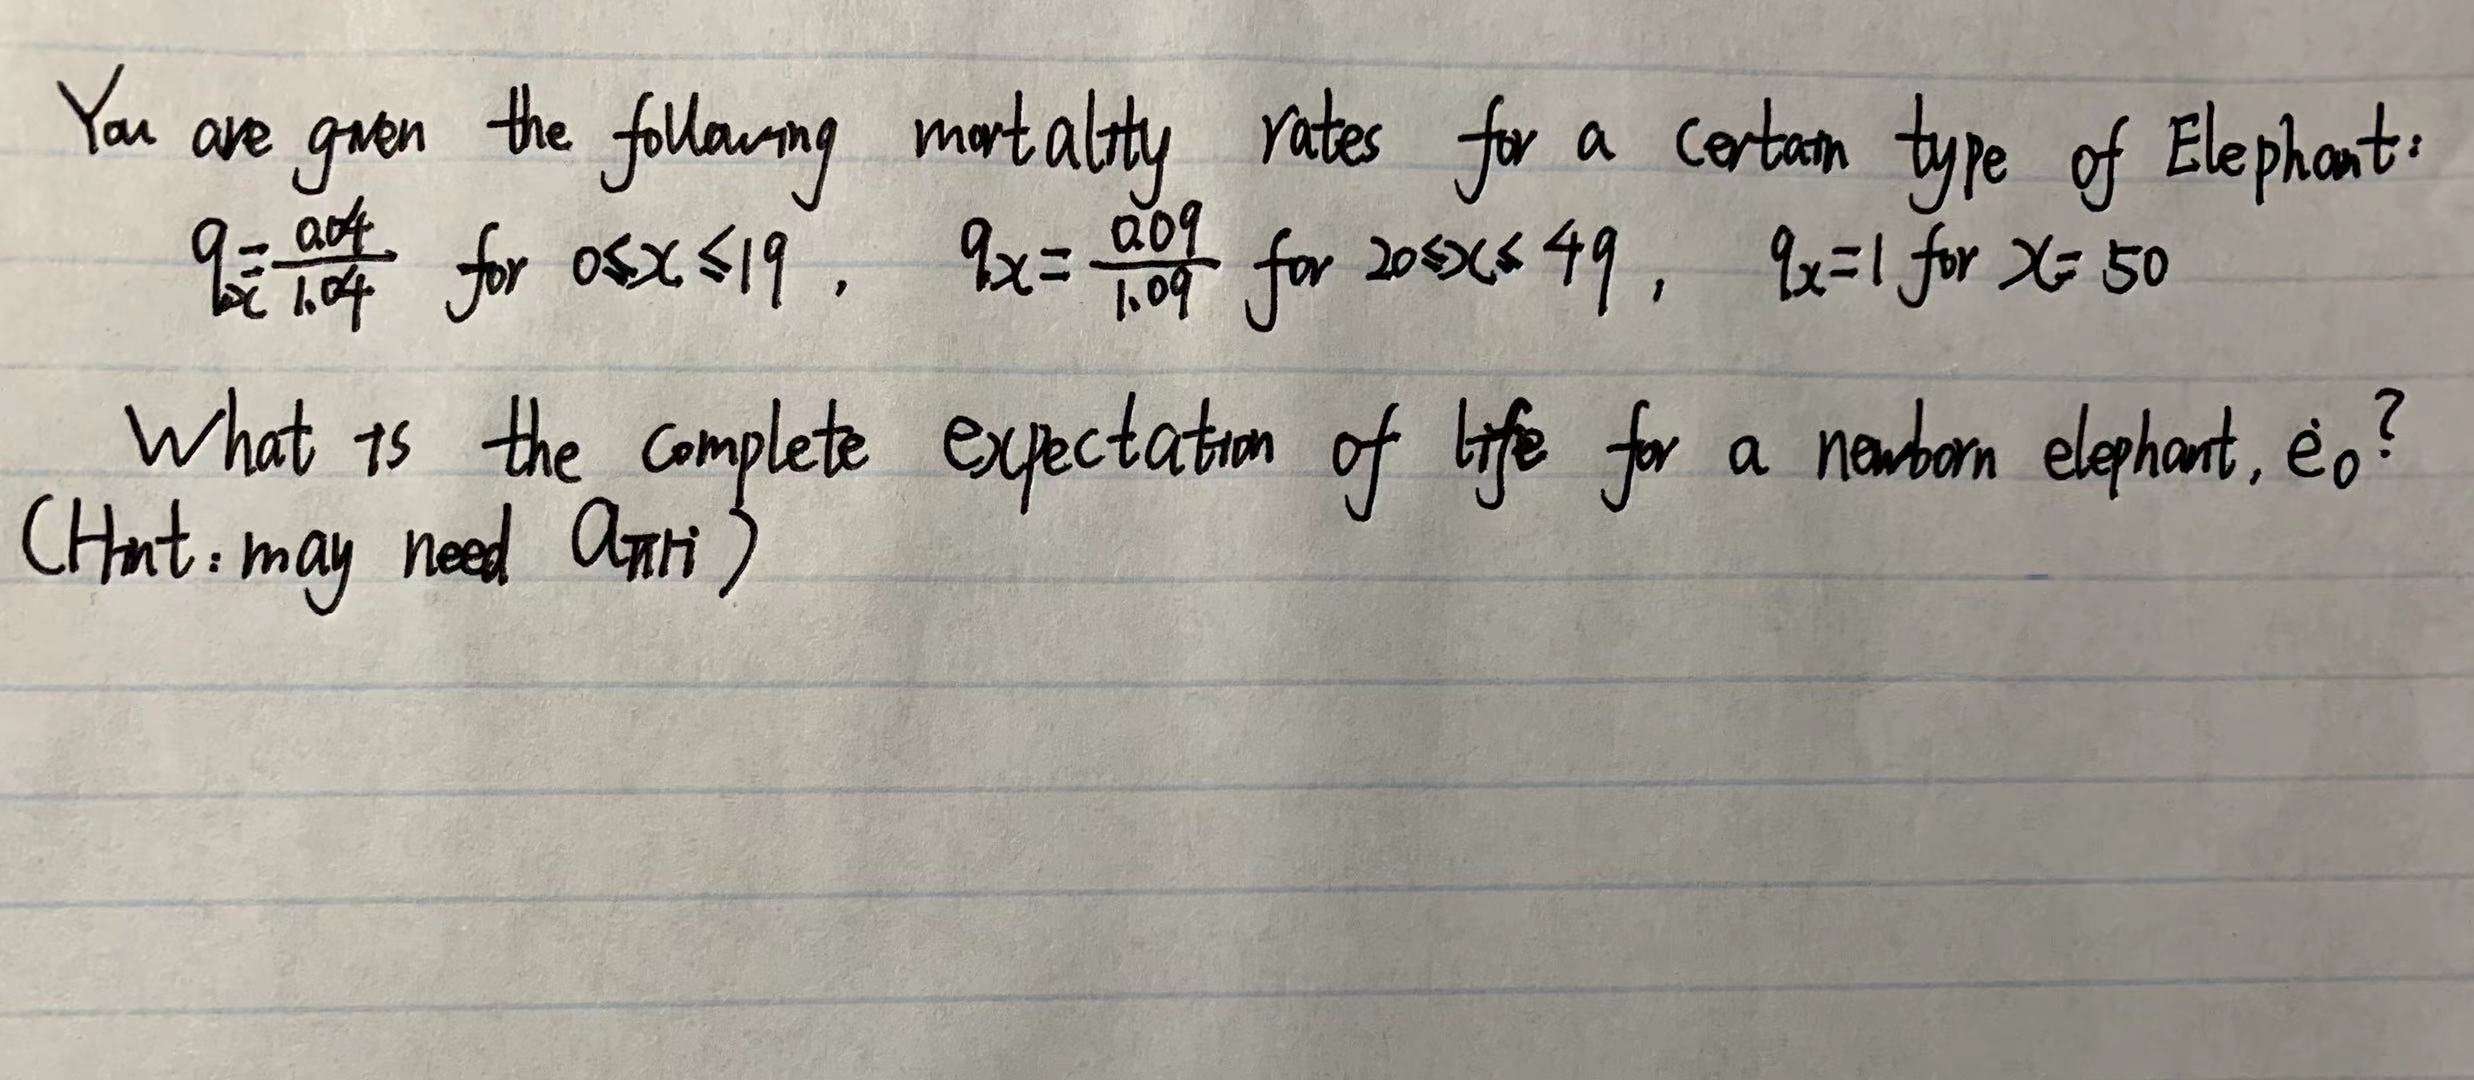 You are given the following mortality rates for a certain type of Elephant:
qx = 0.04/1.04 for 0≤x≤19, qx = 0.09/1.09 for 20≤x≤49, qx=1 for x=50
What is the complete expectation of life for a newborn elephant, ė0?
(Hint: may need an̅|i)